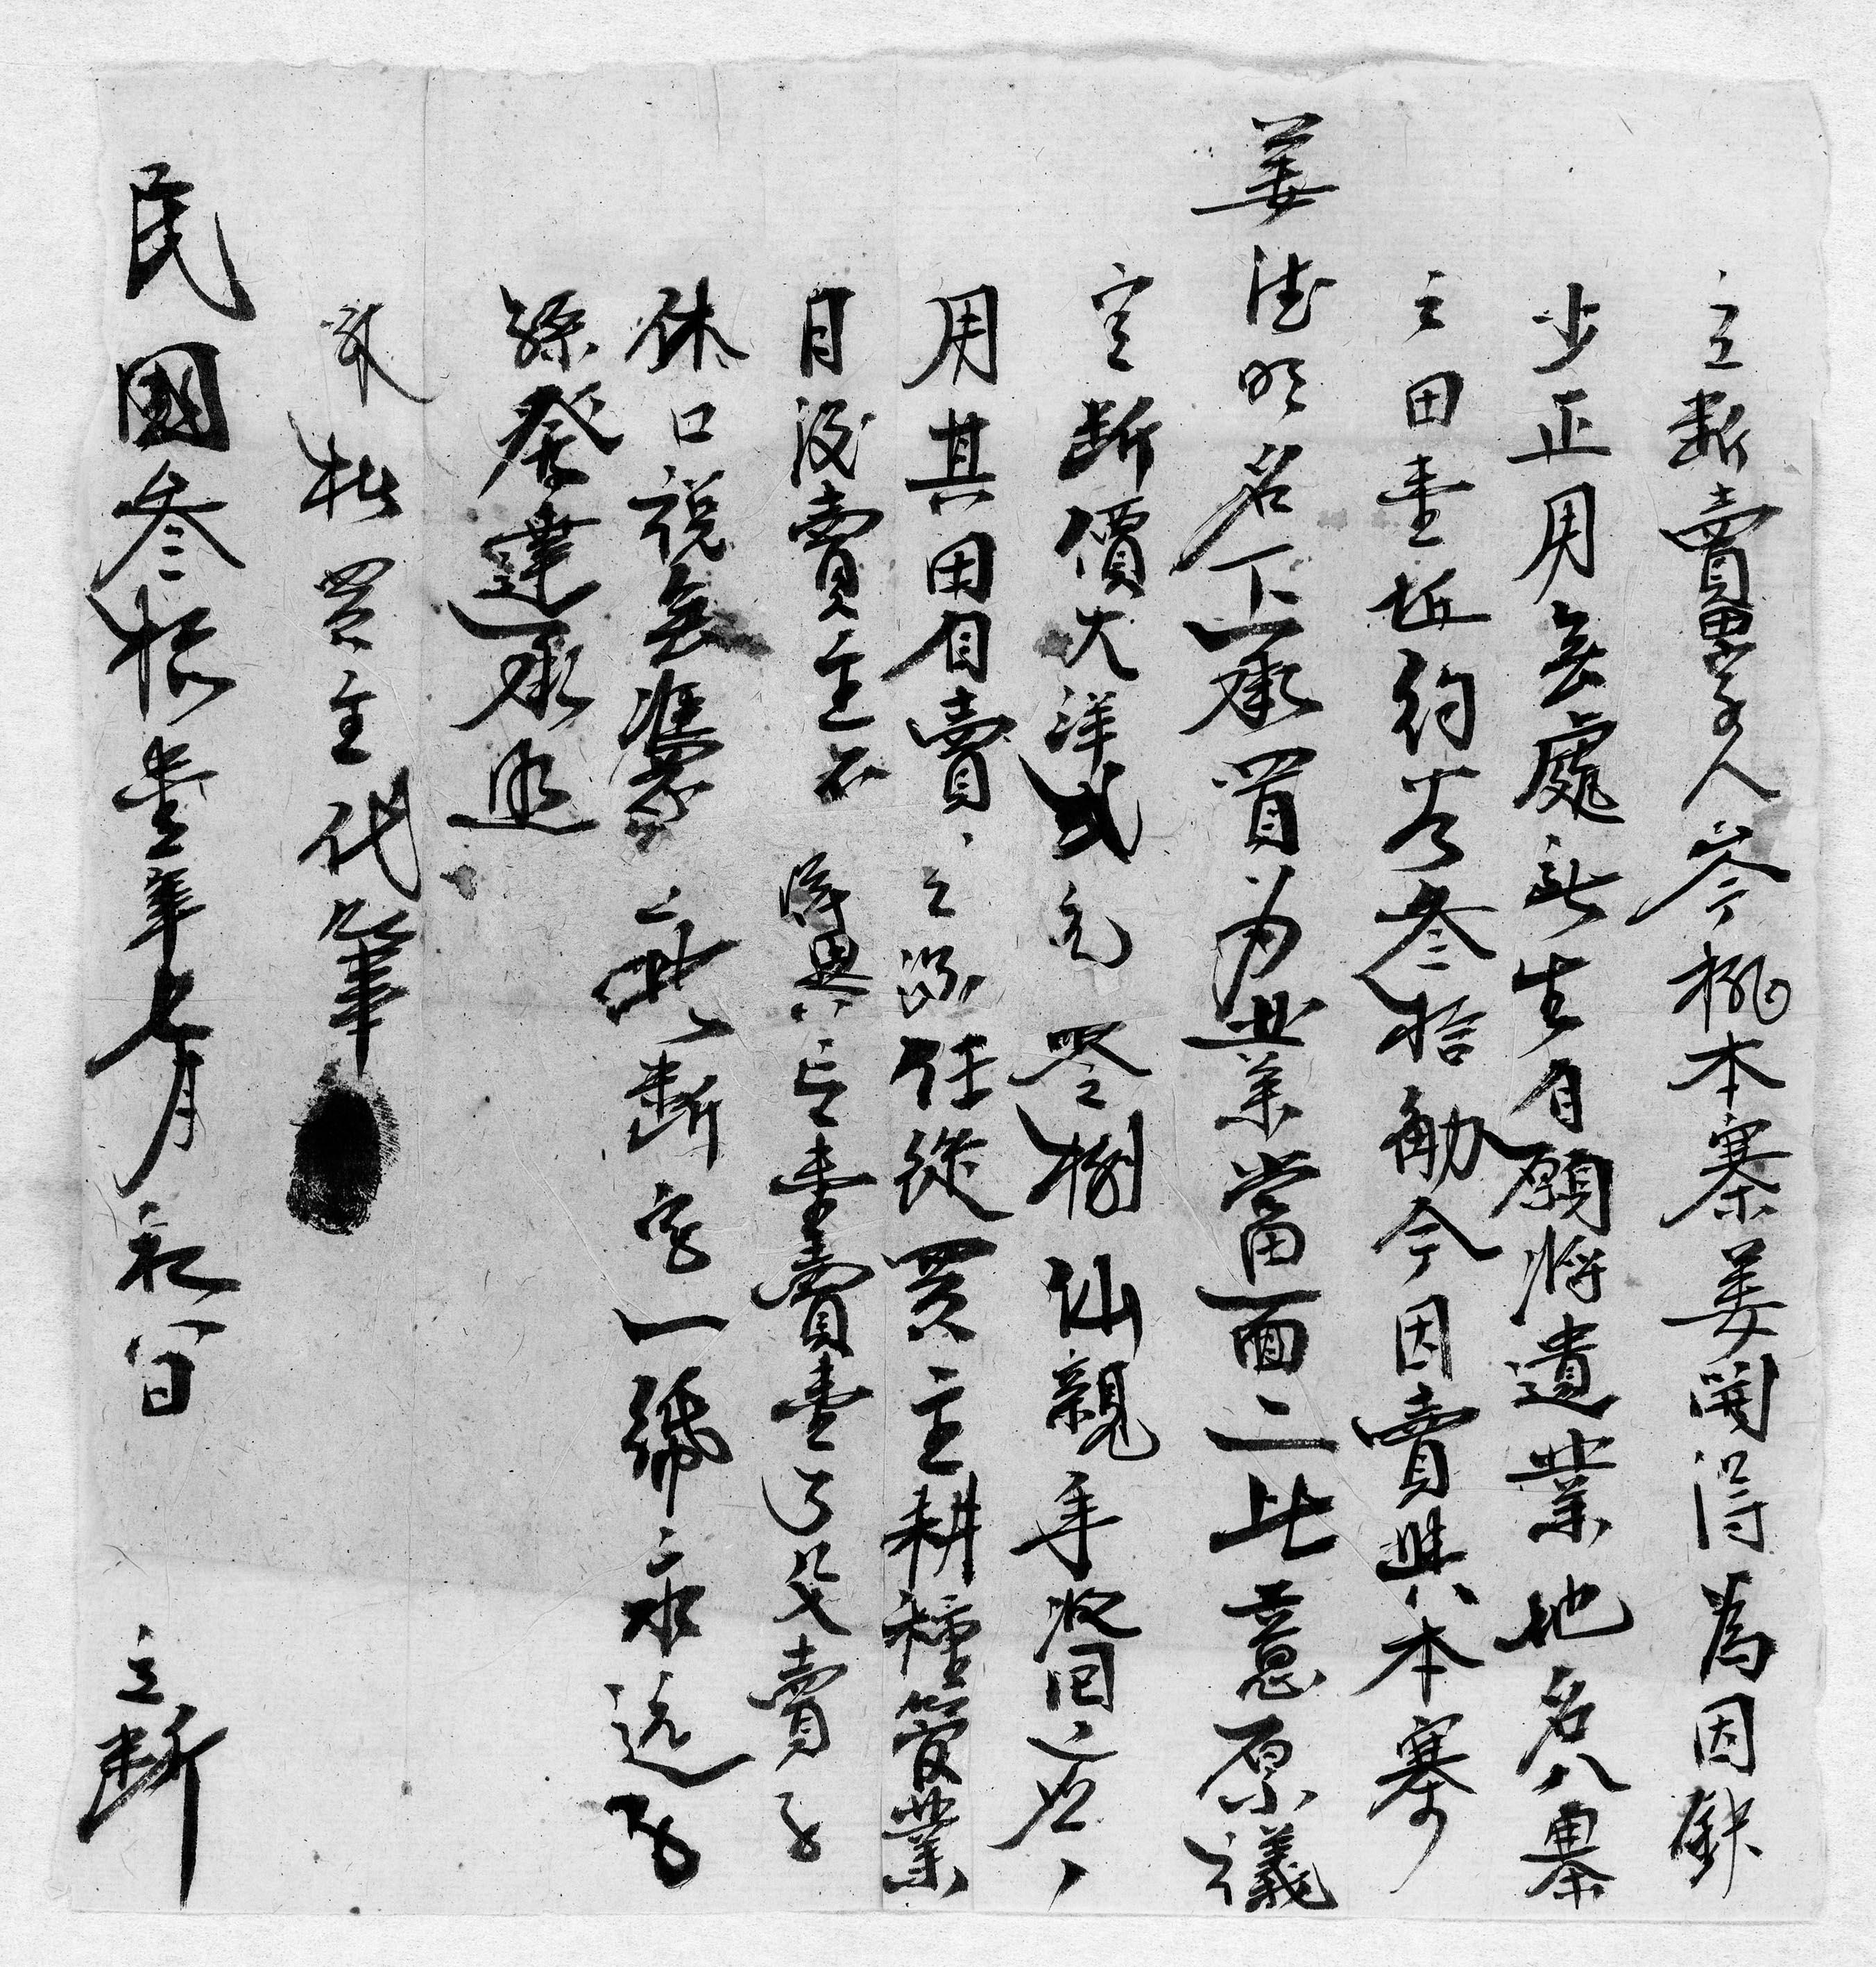 立断賣田字人岑桃本寨姜開得為因缺
少正用無處出自願將遺業地名八舉
之田壹坵約谷叁拾觔今因賣與本寨
姜德明名下承買为業當面二比意原議
定断價大洋弍元 仙親手收回應
用其田自賣之後任從買主耕種管業
日後賣主不得異言壹賣壹了父賣子
休口說無憑立此断字一紙永遠子
孫發達承照
買主代筆
民國叁拾壹年七月初八日 立断